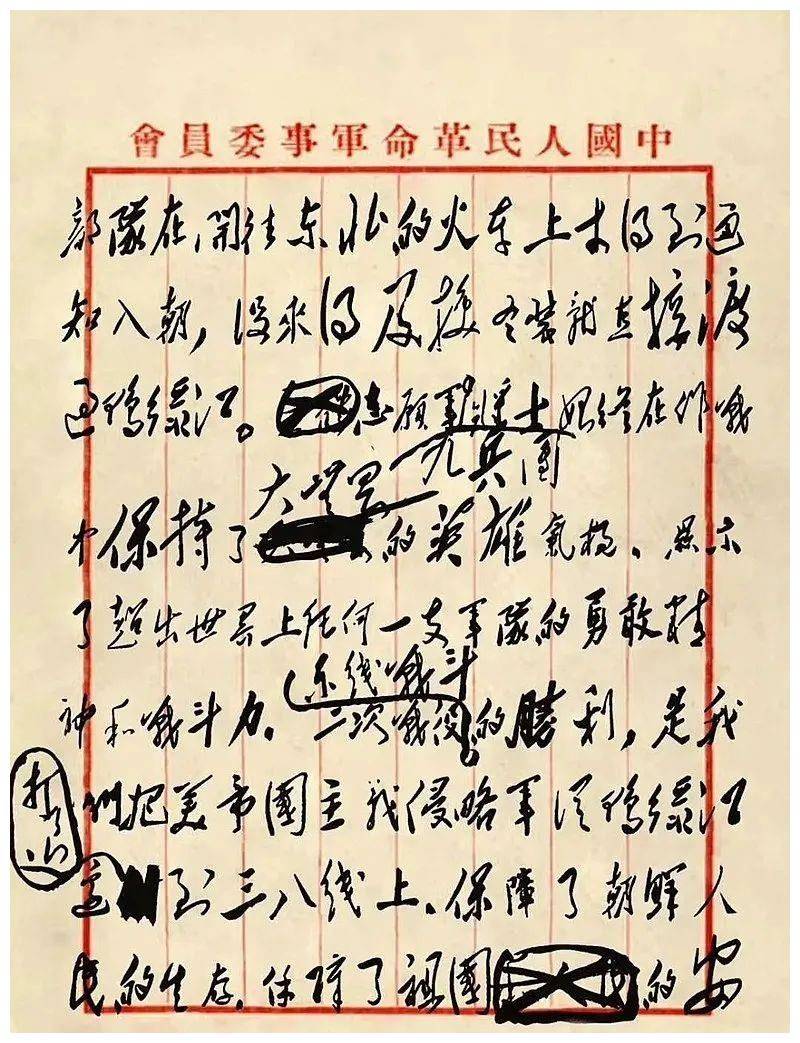 中國人民革命軍事委員會
部隊在開往东北的火车上才得到通
知入朝，没來得及换冬装就直接渡
过鸭绿江。志愿軍战士始终在作战
九兵团
大无畏
中保持了的英雄氣概、显示
了超出世界上任何一支军隊的勇敢精
(东线战斗
神和战斗力。二次战役的勝利，是我
打了
们把美帝國主我侵略军从鸭绿江
边到三八线上、保障了朝鲜人
民的生存、保障了祖國的安